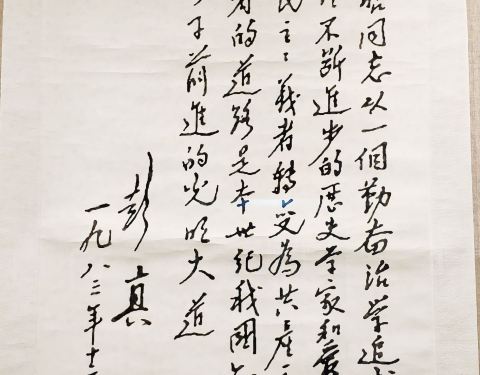 同志以一個勤奋治学追
不断進步的歷史学家和愛
民主々義者轉变為共產
者的道路是本世紀我國
子前進的光明大道
彭真
一九八三年十